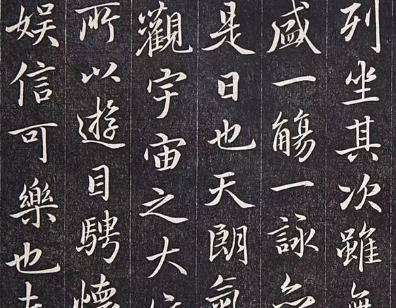 列坐其次雖
盛一觴一詠
是日也天朗氣
觀宇宙之大
所以遊目騁懷
娛信可樂也